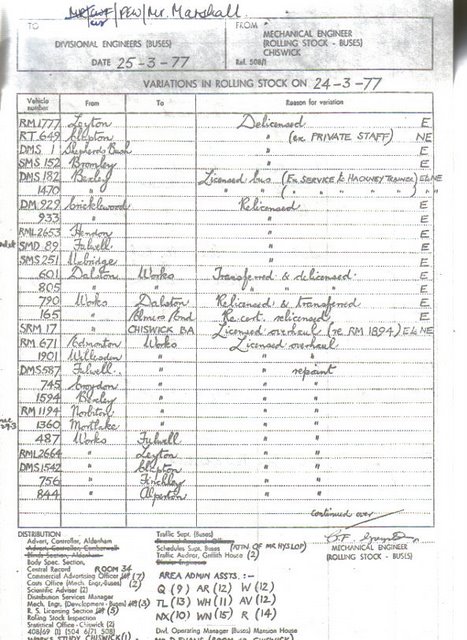 MR/CWF/PEW/Mr. Marshall.
TO
DIVISIONAL ENGINEERS (BUSES)
DATE 25-3-77
FROM
MECHANICAL ENGINEER
(ROLLING STOCK - BUSES)
CHISWICK
Ref. 508/1
VARIATIONS IN ROLLING STOCK ON 24-3-77
Vehicle number From To Reason for variation
RM1777 Leyton Delicensed E
RT 649 Clepton " (ex PRIVATE STAFF) NE
DMS 1 Shepherds Bush " E
SMS 152 Bromley " E
DMS 182 Bexley Licensed bus (Ex SERVICE to HACKNEY TRAINER) E&NE
1470 " " " ( " " " " ) " "
DM 929 Cricklewood Relicensed E
933 " " E
RML2653 Hendon " E
SMD 89 Fulwell " E
SMS 251 Uxbridge " E
601 Dalston Works Transferred & delicensed E
805 " " " " " E
790 Works Dalston Relicensed & transferred E
165 " Elmers End Re.cert. relicensed E
SRM 17 " CHISWICK BA Licensed overhaul (re RM 1894) E&NE
RM 671 Edmonton Works Licensed overhaul
1901 Willesden " " "
DMS587 Fulwell " " repaint
745 Croydon " " "
1594 Bexley " " "
RM 1194 Norbiton " " "
1360 Mortlake " " "
487 Works Fulwell " "
RML2664 " Leyton " "
DMS1542 " Clepton " "
756 " Finchley " "
844 " Alperton " "
continued over
MECHANICAL ENGINEER
(ROLLING STOCK - BUSES)
DISTRIBUTION
Advert. Controller, Aldenham
Advert. Controller, Camberwell
Body Spec. Section,
Central Record ROOM 34
Commercial Advertising Officer (7)
Cost Office (Mech. Engr. Buses) (2)
Scientific Adviser (2)
Distribution Services Manager
Mech. Engr. (Development - Buses) (3)
R. S. Licensing Section (5)
Rolling Stock Inspection
Statistical Office - Chiswick (2)
408/69 (I) (504 6/71 508)
Traffic Supt. (Buses)
Schedules Supt. Buses (ATTN OF MR HYSLOP)
Traffic Auditor, Griffith House (2)
AREA ADMIN ASSTS. :-
Q (9) AR (12) W (12)
TL (13) WH (11) AV (12)
NX (10) WN (15) R (14)
Divl. Operating Manager (Buses) Mansion House